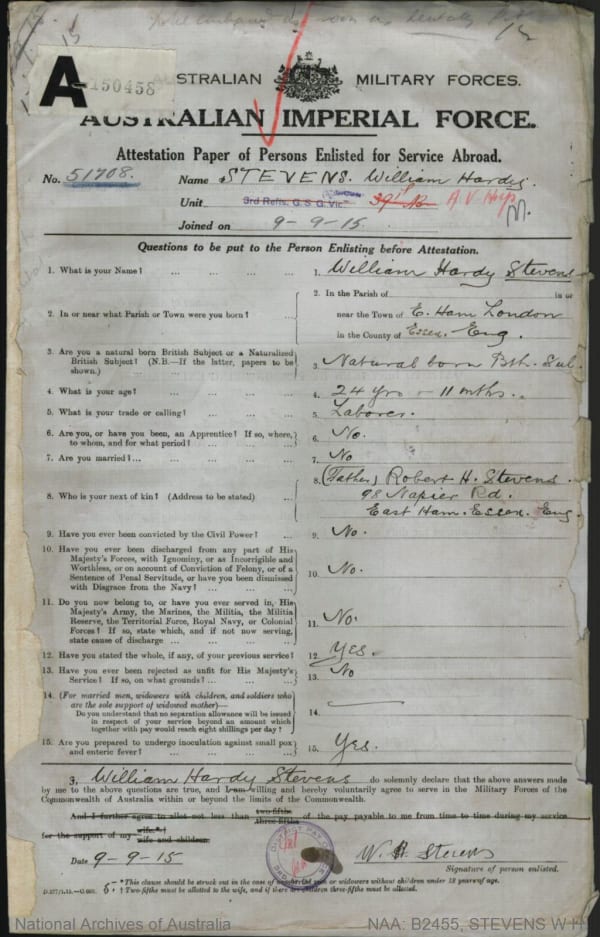 as soon as dentally
15
A-150458
AUSTRALIAN MILITARY FORCES.
AUSTRALIAN IMPERIAL FORCE.
Attestation Paper of Persons Enlisted for Service Abroad.
No. 51708. Name STEVENS. William Hardy.
Unit 3rd Refts. G.S.G. Vic A V Hosp
Joined on 9-9-15.
Questions to be put to the Person Enlisting before Attestation.
1. What is your Name? ... ... ... 1. William Hardy Stevens
2. In or near what Parish or Town were you born? ... 2. In the Parish of in or
near the Town of E. Ham London
in the County of Essex. Eng.
3. Are you a natural born British Subject or a Naturalized
British Subject? (N.B.—If the latter, papers to be
shown.) ... ... ... 3. Natural born Bth. Sub.
4. What is your age? ... ... ... 4. 24 yrs - 11 mths.
5. What is your trade or calling? ... ... ... 5. Laborer.
6. Are you, or have you been, an Apprentice? If so, where,
to whom, and for what period? ... ... ... 6. No.
7. Are you married? ... ... ... ... 7. No
8. Who is your next of kin? (Address to be stated) ... 8. (Father) Robert H. Stevens.
98 Napier Rd.
East Ham. Essex. Eng.
9. Have you ever been convicted by the Civil Power? ... 9. No.
10. Have you ever been discharged from any part of His
Majesty's Forces, with Ignominy, or as Incorrigible and
Worthless, or on account of Conviction of Felony, or of a
Sentence of Penal Servitude, or have you been dismissed
with Disgrace from the Navy? ... ... ... 10. No.
11. Do you now belong to, or have you ever served in, His
Majesty's Army, the Marines, the Militia, the Militia
Reserve, the Territorial Force, Royal Navy, or Colonial
Forces? If so, state which, and if not now serving,
state cause of discharge ... ... ... ... 11. No.
12. Have you stated the whole, if any, of your previous service? 12. Yes.
13. Have you ever been rejected as unfit for His Majesty's
Service? If so, on what grounds? ... ... ... 13. No
14. (For married men, widowers with children, and soldiers who
are the sole support of widowed mother)—
Do you understand that no separation allowance will be issued
in respect of your service beyond an amount which
together with pay would reach eight shillings per day? ... 14.
15. Are you prepared to undergo inoculation against small pox
and enteric fever? ... ... ... ... 15. Yes.
I, William Hardy Stevens do solemnly declare that the above answers made
by me to the above questions are true, and I am willing and hereby voluntarily agree to serve in the Military Forces of the
Commonwealth of Australia within or beyond the limits of the Commonwealth.
And I further agree to allot not less than two-fifths three-fifths of the pay payable to me from time to time during my service
for the support of my wife.*† wife and children.
Date 9-9-15 W. H. Stevens
Signature of person enlisted.
*This clause should be struck out in the case of unmarried men or widowers without children under 18 years of age.
D.277/1.15.—C.668. † Two-fifths must be allotted to the wife, and if there are children three-fifths must be allotted.
DISTRICT PAY OFFICE
National Archives of Australia NAA: B2455, STEVENS W H